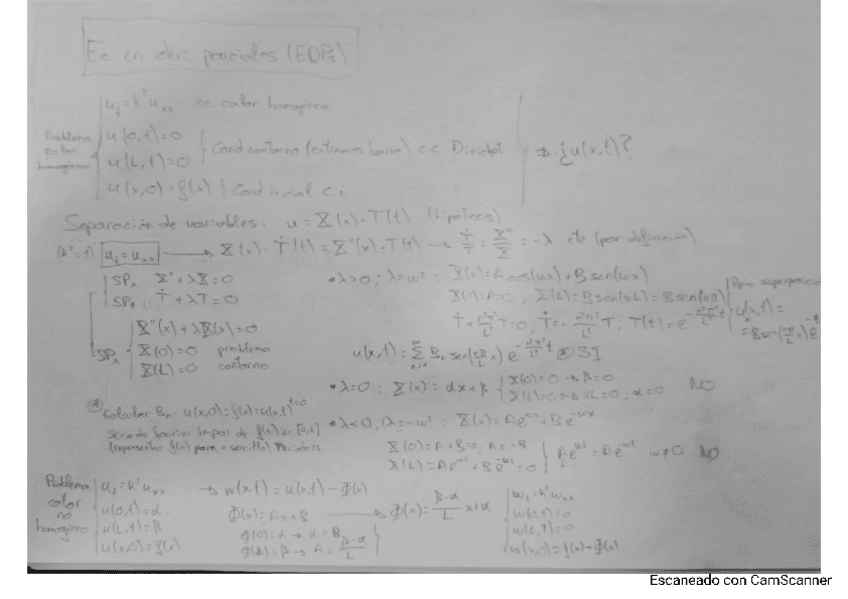 Ec en der. parciales (EDPs)
u_t = k² u_xx ec. calor homogénea
Problema calor homogéneo
u(0,t)=0
u(L,t)=0 } Cond contorno (extremos barra) c.c Dirichlet ⇒ ¿u(x,t)?
u(x,0)=f(x) } Cond inicial c.i
Separación de variables: u = X(x)·T(t) (hipótesis)
(k²=1) u_t = u_xx → X(x)·Ṫ(t) = X''(x)·T(t) → Ṫ/T = X''/X = -λ cte (por definición)
SP_x X''+λX=0
SP_t Ṫ+λT=0
SP_x X''(x)+λX(x)=0
X(0)=0 problema
X(L)=0 contorno
•λ>0; λ=ω²: X(x)=A cos(ωx)+B sen(ωx)
X(0)=A=0, X(L)=B sen(ωL)=B sen(nπ)
Ṫ+n²π²/L² T=0; Ṫ=-n²π²/L² T; T(t)=e^(-n²π²/L² t)
Ppio superposición
u(x,t)=
=B sen(nπ/L x) e
u(x,t)=∑ B_n sen(nπ/L x) e^(-n²π²/L² t) ⊛ SI
•λ=0: X(x)=αx+β { X(0)=0 → β=0
X(L)=0 → αL=0, α=0 NO
⊛ Calcular B_n. u(x,0)=f(x)=u(x,t)^(t=0)
Serie de fourier impar de f(x) en [0,L]
•λ<0; λ=-ω²: X(x)=Ae^(ωx)+Be^(-ωx)
X(0)=A+B=0, A=-B
X(L)=Ae^(ωL)+Be^(-ωL)=0 } Ae^(ωL)=Ae^(-ωL) ω≠0 NO
Problema calor no homogéneo
u_t=k²u_xx → w(x,t)=u(x,t)-Φ(x)
u(0,t)=α
u(L,t)=β
u(x,0)=f(x)
Φ(x)=Ax+B → Φ(x)=(β-α)/L x+α
Φ(0)=α → α=B
Φ(L)=β → A=(β-α)/L
w_t=k²w_xx
w(0,t)=0
w(L,t)=0
w(x,0)=f(x)-Φ(x)
Escaneado con CamScanner